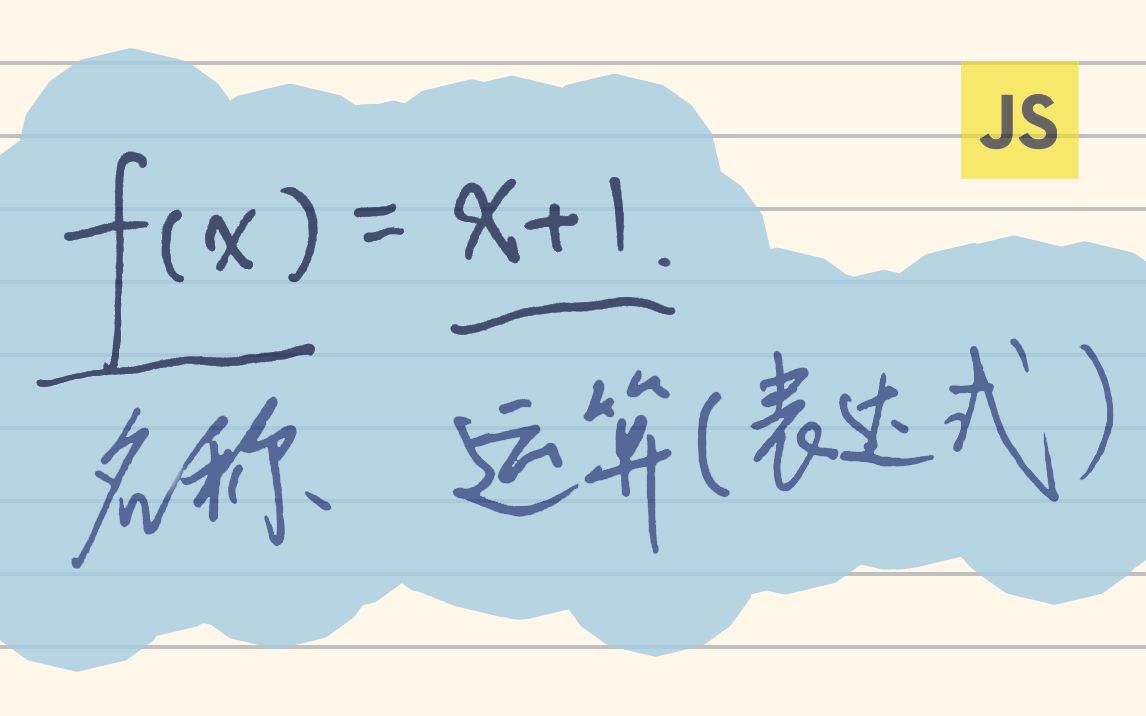 JS
f(x) = x+1.
名称 运算(表达式)